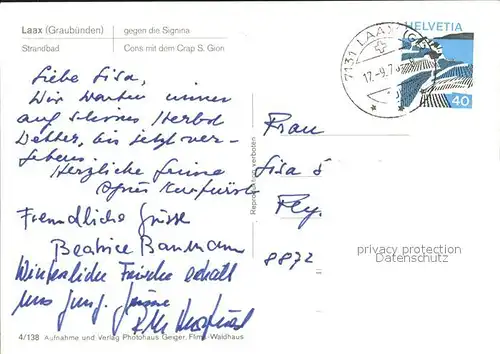 Laax (Graubünden) gegen die Signina
Strandbad Cons mit dem Crap S. Gion
HELVETIA
7131 LAAX (GR)
17.-9.7
40
Liebe Lisa,
Wir warten immer
auf schönes Herbst
Wetter, bis jetzt ver-
gebens.
Herzliche Grüsse
Agnes Kurfürst
Freundliche Grüsse
Beatrice Baumann
Winterliche Frische erhält
uns jung. Grüsse
Frau
Lisa
Fly.
8872
privacy protection
Oldthing.com
Reproduktion verboten
4/138 Aufnahme und Verlag Photohaus Geiger, Flims-Waldhaus